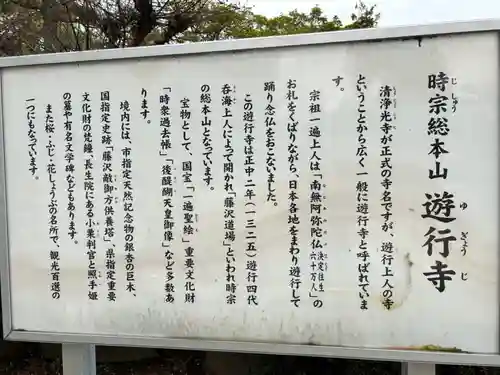 時宗総本山 遊行寺
じしゅう ゆぎょうじ
清浄光寺が正式の寺名ですが、遊行上人の寺
ということから広く一般に遊行寺と呼ばれていま
す。
宗祖一遍上人は「南無阿弥陀仏 決定往生六十万人」の
お札をくばりながら、日本各地をまわり遊行して
踊り念仏をおこないました。
この遊行寺は正中二年(一三二五)遊行四代
呑海上人によって開かれ「藤沢道場」といわれ時宗
の総本山となっています。
宝物として、国宝「一遍聖絵」重要文化財
「時衆過去帳」「後醍醐天皇御像」など多数あ
ります。
境内には、市指定天然記念物の銀杏の巨木、
国指定史跡「藤沢敵御方供養塔」、県指定重要
文化財の梵鐘、長生院にある小栗判官と照手姫
の墓や有名文学碑などもあります。
また桜・ふじ・花しょうぶの名所で、観光百選の
一つにもなっています。